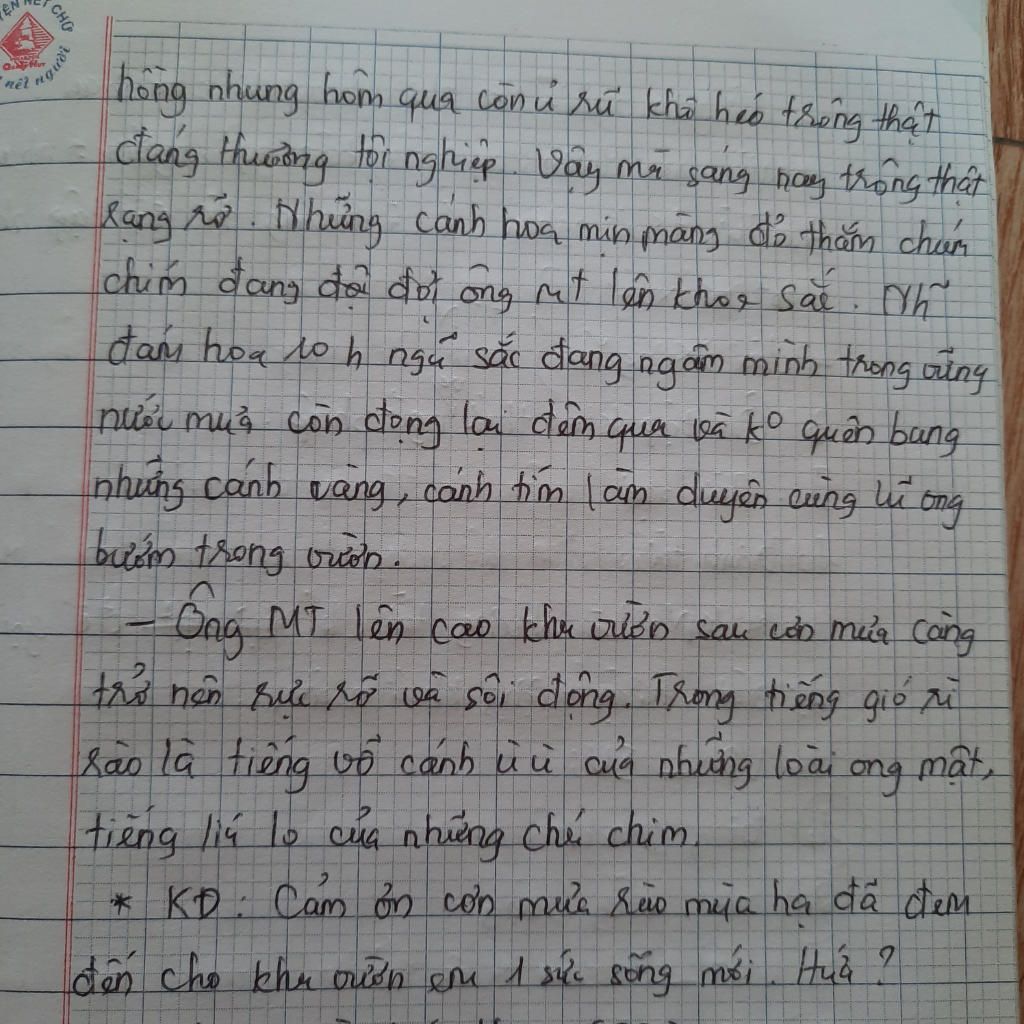 ỆN NÉT CHỮ
nết người
hồng nhung hôm qua còn ủ rũ khô héo trông thật
đáng thương tội nghiệp. Vậy mà sáng nay trông thật
rạng rỡ. Những cánh hoa mịn màng đỏ thắm chúm
chím đang đợi đợt ông MT lên khoe sắc. Nh~
đám hoa 10h ngũ sắc đang ngâm mình trong vũng
nước mưa còn đọng lại đêm qua và ko quên bung
những cánh vàng, cánh tím làm duyên cùng lũ ong
bướm trong vườn.
- Ông MT lên cao khu vườn sau cơn mưa càng
trở nên rực rỡ và sôi động. Trong tiếng gió rì
rào là tiếng vỗ cánh ù ù của những loài ong mật,
tiếng líu lo của những chú chim.
* KĐ: Cảm ơn cơn mưa rào mùa hạ đã đem
đến cho khu vườn em 1 sức sống mới. Hứa?